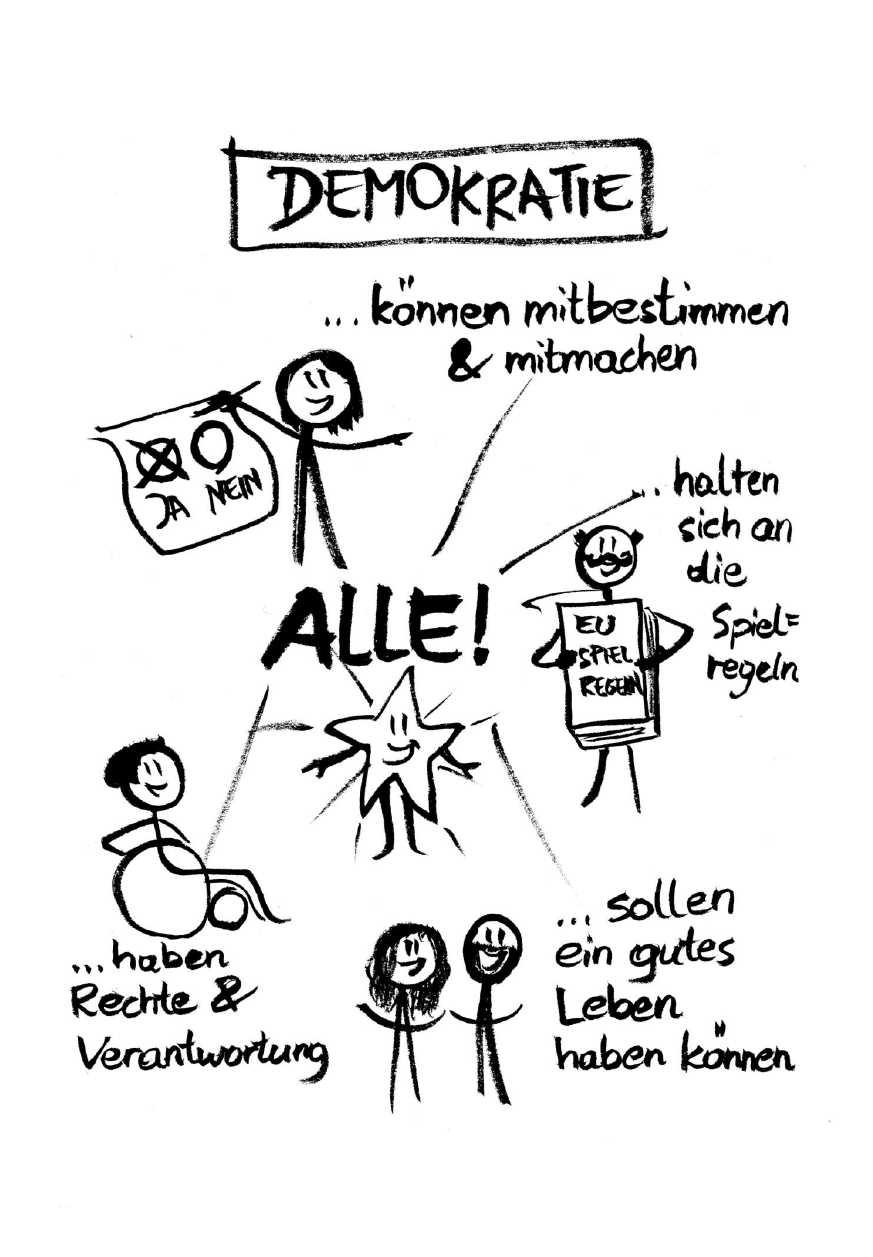 DEMOKRATIE
...können mitbestimmen
& mitmachen
JA NEIN
... halten
sich an
die
Spiel=
regeln
ALLE!
EU
SPIEL
REGELN
...haben
Rechte &
Verantwortung
... sollen
ein gutes
Leben
haben können